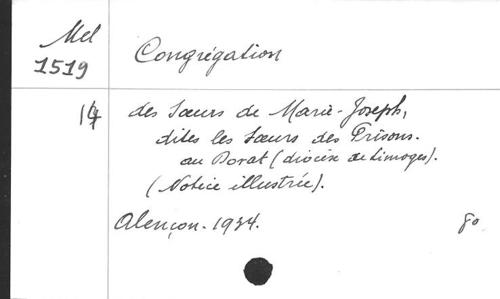 Mel
1519
Congrégation
14
des Sœurs de Marie-Joseph,
dites les Sœurs des Prisons.
au Dorat (diocèse de Limoges).
(Notice illustrée).
Alençon. 1934.
8o